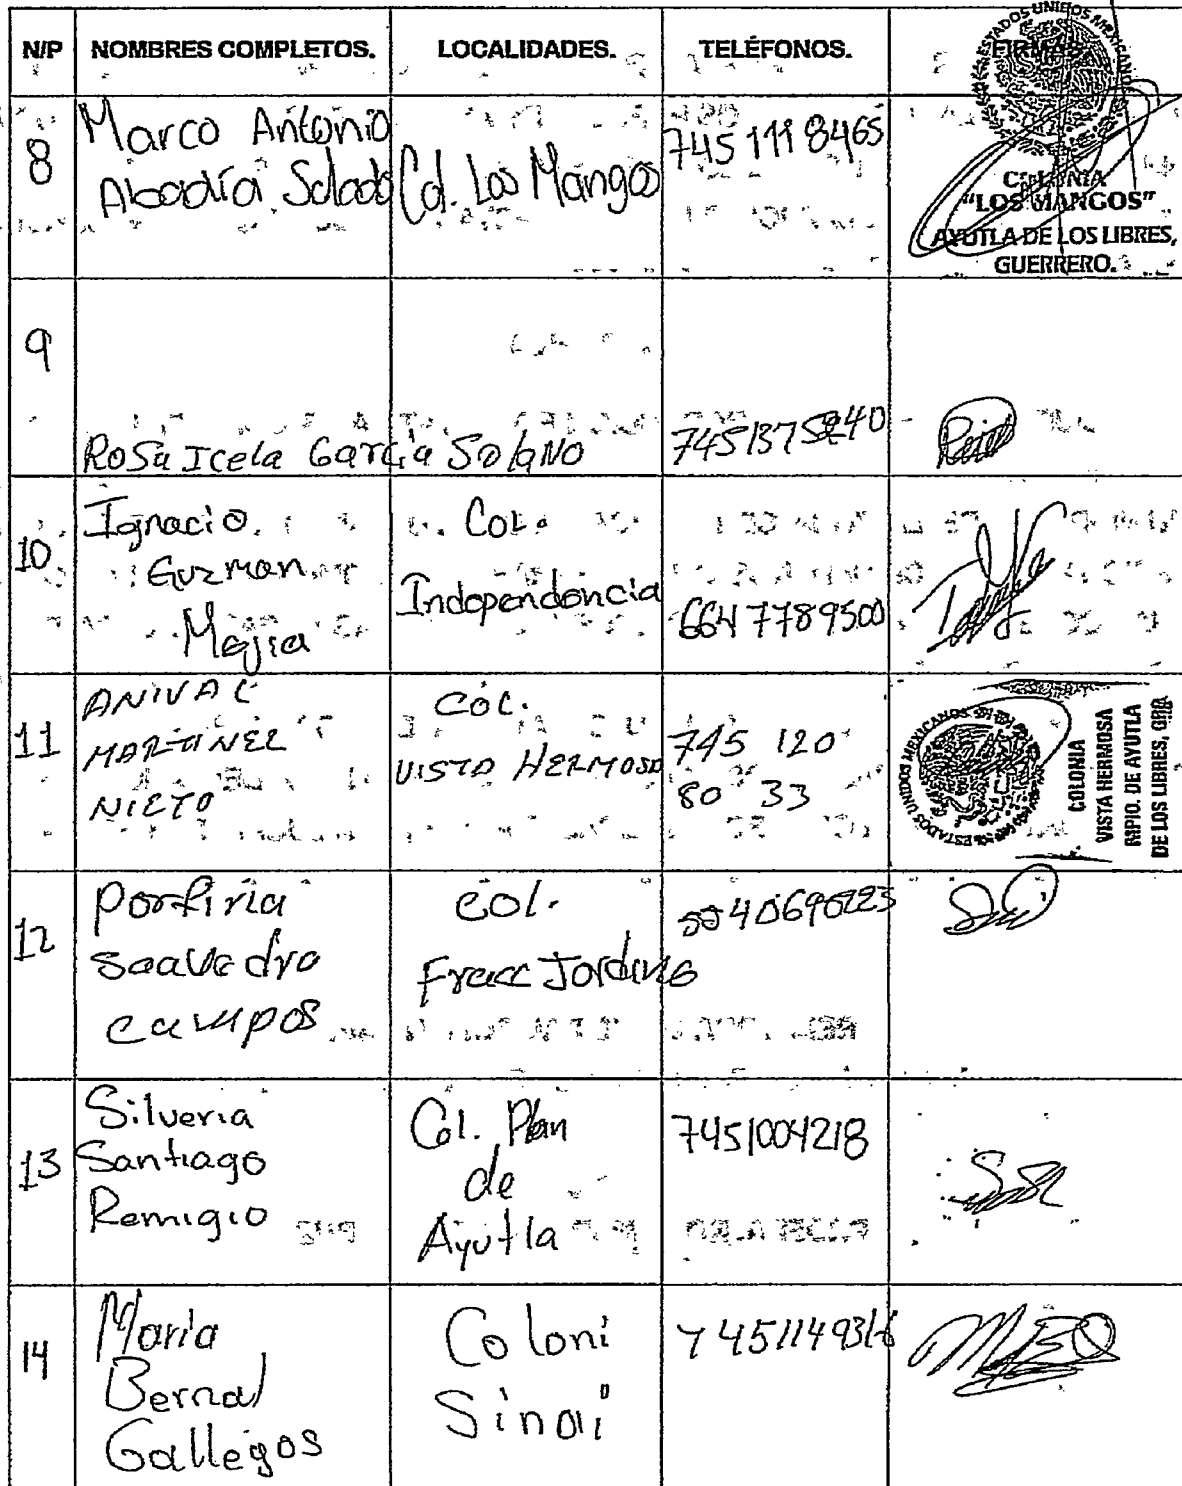 N/P NOMBRES COMPLETOS. LOCALIDADES. TELÉFONOS. FIRMAS
ESTADOS UNIDOS MEXICANOS
8 Marco Antonio
Abadía Solado Col. Los Mangos 745 111 8465
COLONIA
"LOS MANGOS"
AYUTLA DE LOS LIBRES,
GUERRERO.
9
Rosa Icela García Solano 745137 5240
10 Ignacio
Guzman
Mejia
Col.
Independencia
664 7789500
11 ANIVAL
MARTINEZ
NIETO
COL.
VISTA HERMOSA
745 120
80 33
ESTADOS UNIDOS MEXICANOS
COLONIA
VISTA HERMOSA
MPIO. DE AYUTLA
DE LOS LIBRES, GRO.
12 Porfiria
Saavedra
campos
col.
Fracc Jordines
13 Silveria
Santiago
Remigio
Col. Plan
de
Ayutla
7451004218
14 Maria
Bernal
Gallegos
Coloni
Sinai